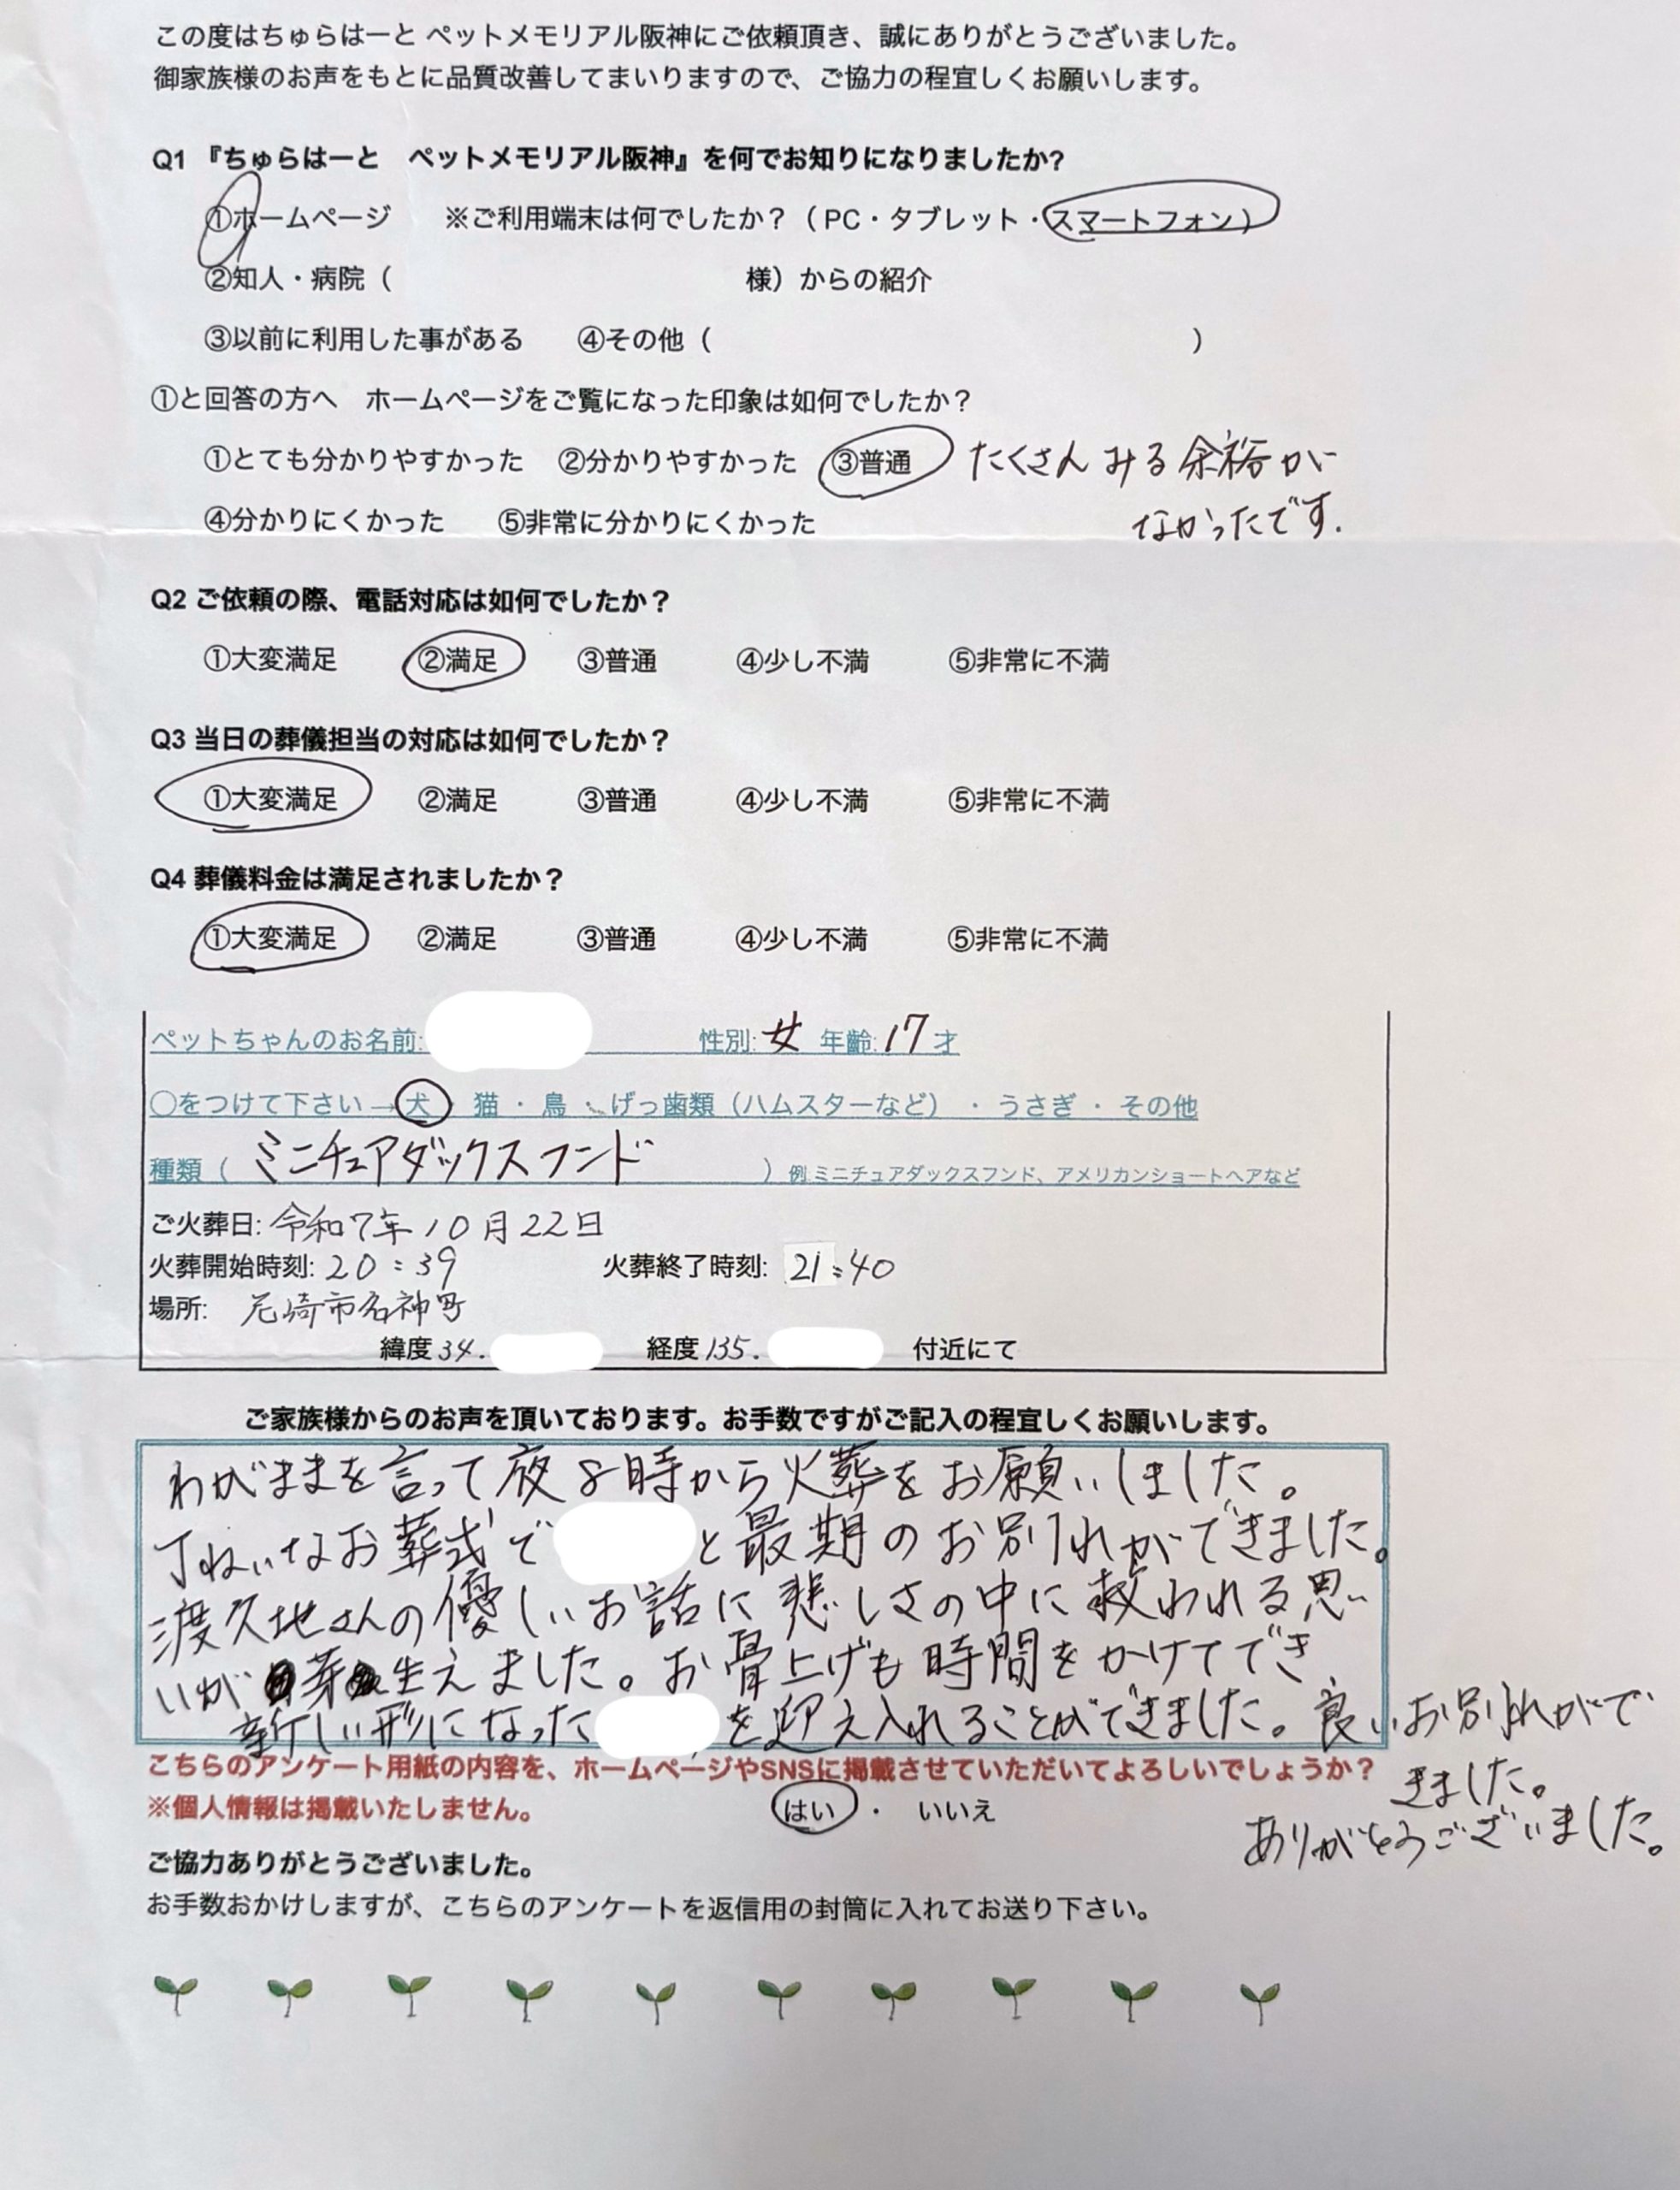 この度はちゅらはーと ペットメモリアル阪神にご依頼頂き、誠にありがとうございました。
御家族様のお声をもとに品質改善してまいりますので、ご協力の程宜しくお願いします。
Q1 『ちゅらはーと　ペットメモリアル阪神』を何でお知りになりましたか?
①ホームページ　※ご利用端末は何でしたか？（PC・タブレット・スマートフォン）
②知人・病院（　　　様）からの紹介
③以前に利用した事がある　④その他（　　　）
①と回答の方へ　ホームページをご覧になった印象は如何でしたか？
①とても分かりやすかった　②分かりやすかった　③普通　たくさん みる 余裕が
④分かりにくかった　⑤非常に分かりにくかった　なかったです.
Q2 ご依頼の際、電話対応は如何でしたか？
①大変満足　②満足　③普通　④少し不満　⑤非常に不満
Q3 当日の葬儀担当の対応は如何でしたか？
①大変満足　②満足　③普通　④少し不満　⑤非常に不満
Q4 葬儀料金は満足されましたか？
①大変満足　②満足　③普通　④少し不満　⑤非常に不満
ペットちゃんのお名前:　性別: 女 年齢: 17才
○をつけて下さい→犬・猫・鳥・げっ歯類（ハムスターなど）・うさぎ・その他
種類（ミニチュアダックスフンド）例 ミニチュアダックスフンド、アメリカンショートヘアなど
ご火葬日: 令和7年10月22日
火葬開始時刻: 20:39　火葬終了時刻: 21:40
場所: 尼崎市名神町
緯度 34.　経度 135.　付近にて
ご家族様からのお声を頂いております。お手数ですがご記入の程宜しくお願いします。
わがままを言って夜8時から火葬をお願いしました。
丁ねいなお葬式で　と最期のお別れができました。
渡久地さんの優しいお話に悲しさの中に救われる思
いが芽生えました。お骨上げも時間をかけてでき
新しい形になった　を迎え入れることができました。良いお別れがで
きました。
ありがとうございました。
こちらのアンケート用紙の内容を、ホームページやSNSに掲載させていただいてよろしいでしょうか？
※個人情報は掲載いたしません。　はい・いいえ
ご協力ありがとうございました。
お手数おかけしますが、こちらのアンケートを返信用の封筒に入れてお送り下さい。